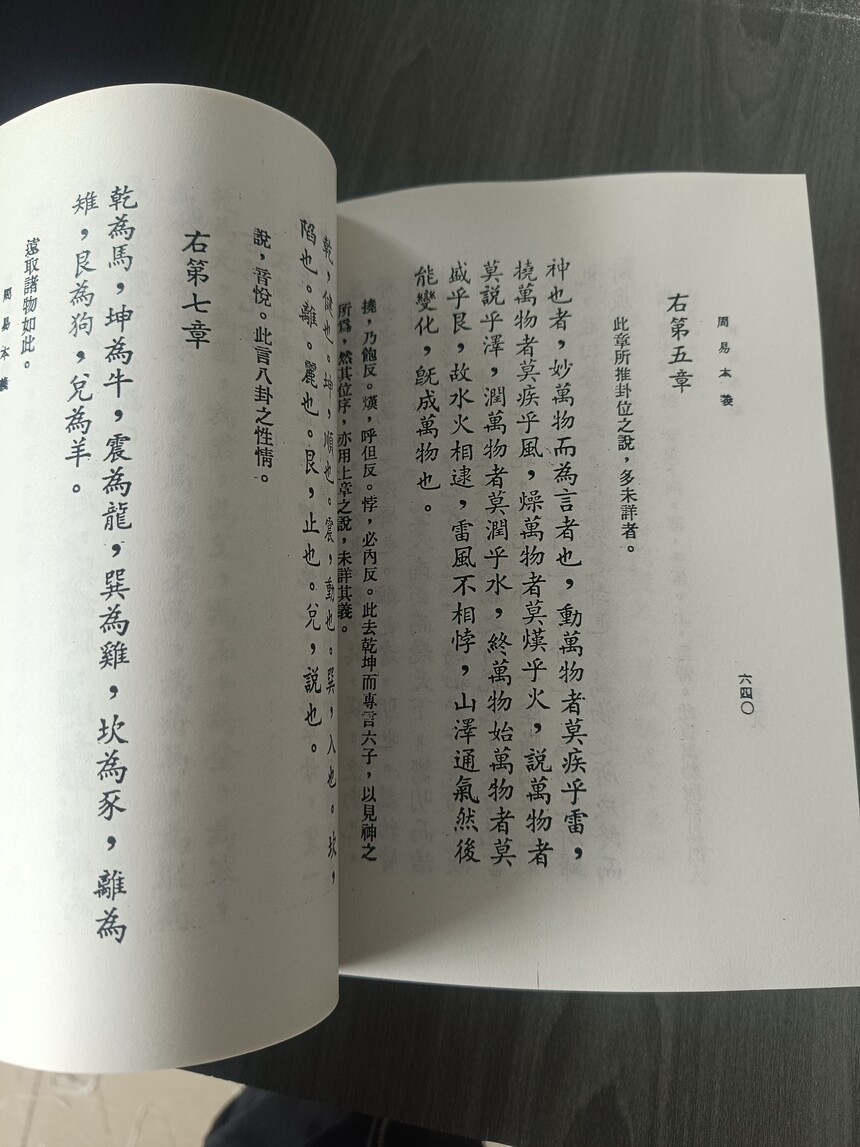 周易本義
六四〇
右第五章
此章所推卦位之說，多未詳者。
神也者，妙萬物而為言者也，動萬物者莫疾乎雷，
撓萬物者莫疾乎風，燥萬物者莫熯乎火，說萬物者
莫說乎澤，潤萬物者莫潤乎水，終萬物始萬物者莫
盛乎艮，故水火相逮，雷風不相悖，山澤通氣然後
能變化，既成萬物也。
撓，乃飽反。熯，呼但反。悖，必內反。此去乾坤而專言六子，以見神之
所為，然其位序，亦用上章之說，未詳其義。
乾，健也。坤，順也。震，動也。巽，入也。坎，
陷也。離。麗也。艮，止也。兌，說也。
說，音悅。此言八卦之性情。
右第七章
乾為馬，坤為牛，震為龍，巽為雞，坎為豕，離為
雉，艮為狗，兌為羊。
遠取諸物如此。
周易本義